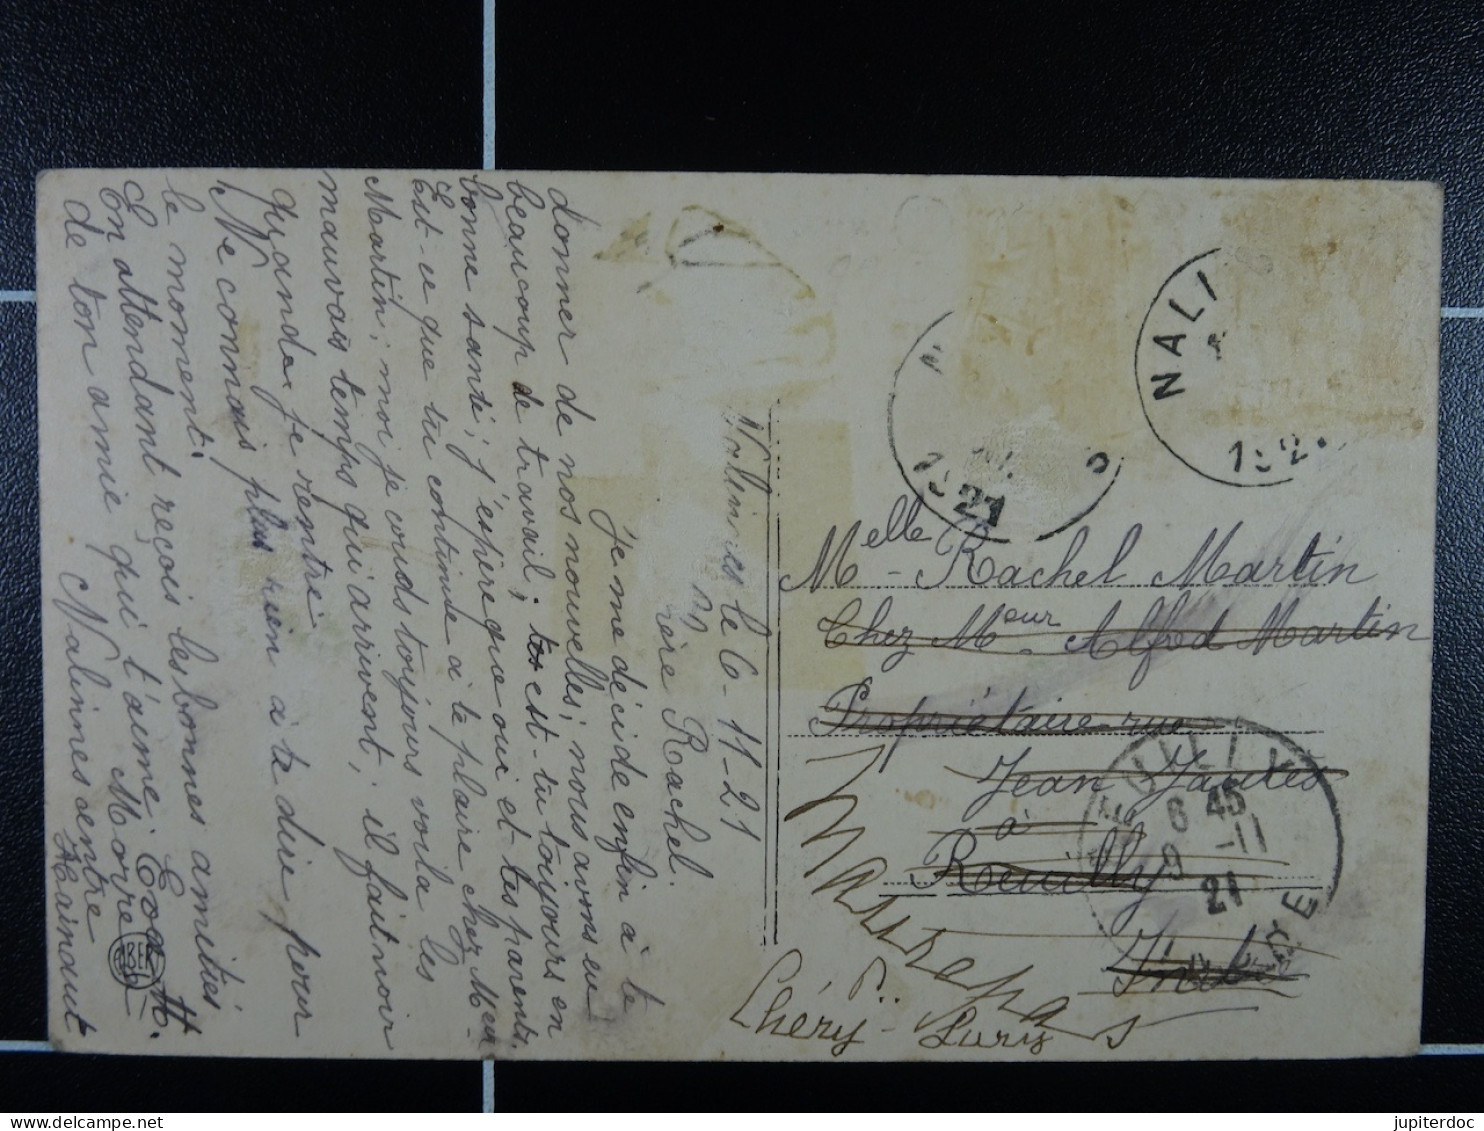 Nalinnes le 6-11-21
Chère Rachel.
Je me décide enfin à te
donner de nos nouvelles; nous avons eu
beaucoup de travail; est-tu toujours en
bonne santé; j'espère que oui et tes parents.
Est-ce que tu continue a te plaire chez Meur
Martin; moi je couds toujours voila les
mauvais temps qui arrivent; il fait noir
quand je rentre.
Ne connais plus rien à te dire pour
le moment.
En attendant reçois les bonnes amitiés
de ton amie qui t'aime Eva H.
Nalinnes centre
Hainaut
Melle Rachel Martin
Chez Meur Alfred Martin
Propriétaire rue
Jean Jaurès
à
Reuilly
Indre
Maurepas
P..
Chéry - Lury
NALI
192
1921
REUILLY
6 45
9 -11
21
INDRE